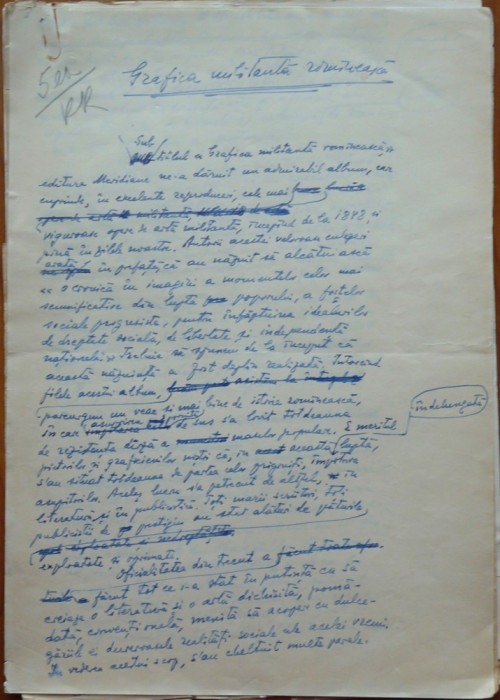 Grafica militantă romînească
Sub
titlul « Grafica militantă romînească, »
editura Meridiane ne-a dăruit un admirabil album, car
cuprinde, în excelente reproduceri, cele mai
viguroase opere de artă militantă, începînd de la 1842, și
pînă în zilele noastre. Autorii acestei valoroase culegeri
arată în prefață, că au năzuit să alcătuiască
« o cronică în imagini a momentelor celor mai
semnificative din lupta poporului, a forțelor
sociale progresiste, pentru înfăptuirea idealurilor
de dreptate socială, de libertate și independență
națională ». Trebuie să spunem de la început că
această năzuință a fost deplin realizată. Întorcînd
filele acestui album,
parcurgem un veac și mai bine de istorie romînească,
în car asuprirea de sus s-a lovit totdeauna
de rezistența dîrză a maselor populare. E meritul
îndelungată
pictorilor și graficienilor noștri că, în această luptă,
s-au situat totdeauna de partea celor oprimați, împotriva
asupritorilor. Același lucru s-a petrecut de altfel, în
literatură, și în publicistică. Toți marii scriitori, toți
publiciștii de prestigiu au stat alături de păturile
exploatate și oprimate.
Oficialitatea din trecut a
făcut tot ce i-a stat în putință ca să
creieze o literatură și o artă dichisită, pomă-
dată, convențională, menită să acopere cu dulce-
gării dureroasele realități sociale ale acelei vremi.
În vederea acestui scop, s-au cheltuit multe parale.